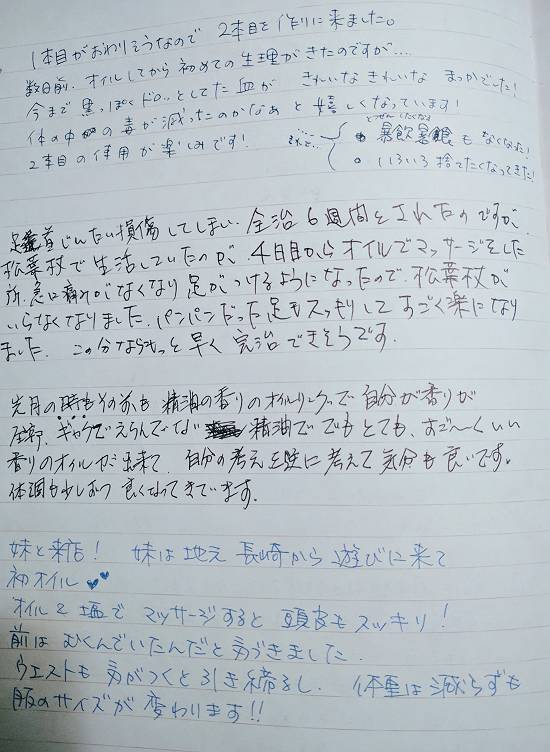 1本目がおわりそうなので 2本目を作りに来ました。
数日前、オイルしてから初めての生理がきたのですが…
今まで黒っぽくドロッとしてた血が きれいなきれいな まっかでした!
体の中の毒が減ったのかなぁと嬉しくなっています!
2本目の使用が楽しみです!
とつぜんしたくなる
暴飲暴食もなくなった!
いろいろ捨てたくなってきた!
足首じんたい損傷してしまい、全治6週間とされたのですが、
松葉杖で生活していたのが、4日目からオイルでマッサージをした
所、急に痛みがなくなり足がつけるようになったので、松葉杖が
いらなくなりました。パンパンだった足もスッキリしてすごく楽になり
ました。この分ならもっと早く完治できそうです。
先月の時もその前も精油の香りのオイルリングで自分が香りが
ギャクでえらんでない 精油ででもとても、すご〜くいい
香りのオイルが出来て、自分の考えを 考えて気分も良いです。
体調も少しずつ良くなってきています。
妹と来店! 妹は地元 長崎から遊びに来て
初オイル
オイル&塩でマッサージすると頭皮もスッキリ!
前はむくんでいたんだと気づきました。
ウエストも気がつくと引き締るし、体重は減らずも
服のサイズが変わります!!